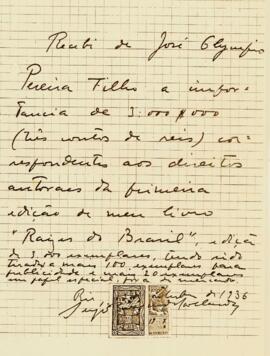 Recebi de José Olympio
Pereira Filho a impor-
tancia de 3:000$000
(três contos de reis) cor-
respondentes aos direitos
autoraes da primeira
edição de meu livro
"Raizes do Brasil", edição
de 3.000 exemplares, tendo sido
tirados mais 100 exemplares para
publicidade e mais 20 exemplares
em papel especial fora de mercado
de 1936